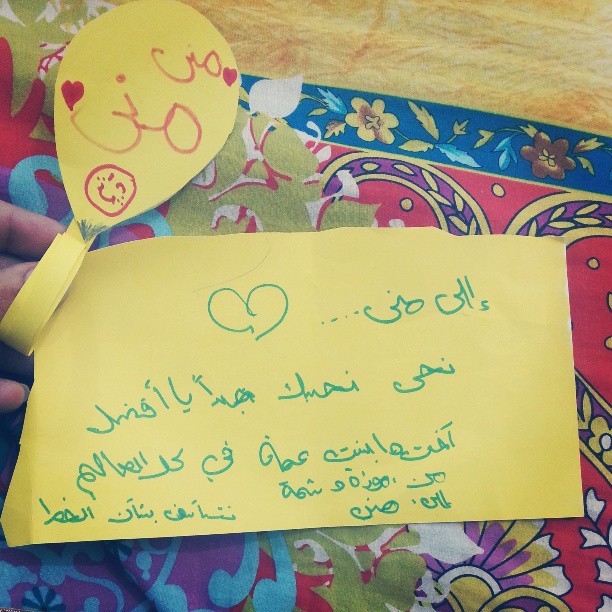 من
منى
إلى منى....
نحن نحبك جداً يا أفضل
أخت وابنت عمة في كل العالم
من: موزة و شمة
إلى: منى
نتأسف بشأن الخط